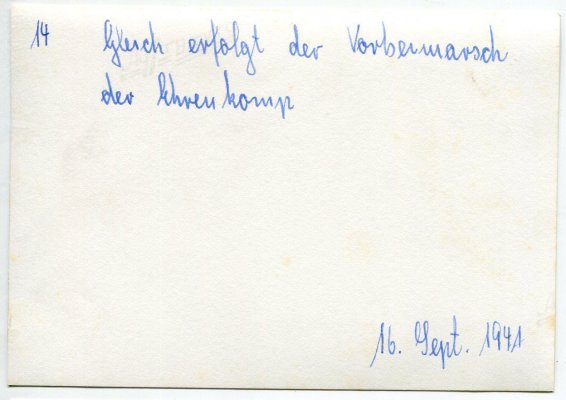 14 Gleich erfolgt der Vorbeimarsch
der Ehrenkomp
16. Sept. 1941